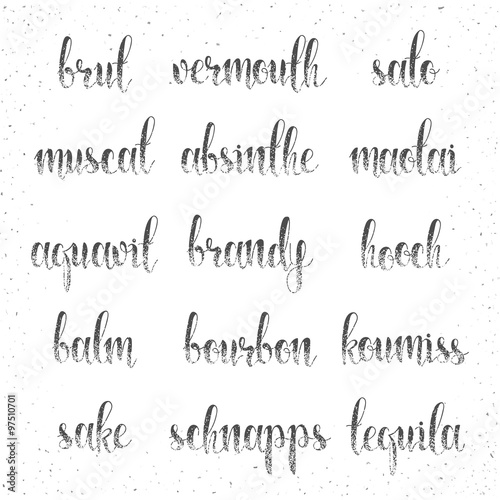 brut vermouth sato
muscat absinthe maotai
aquavit brandy hooch
balm bourbon koumiss
sake schnapps tequila
Adobe Stock | #97510701